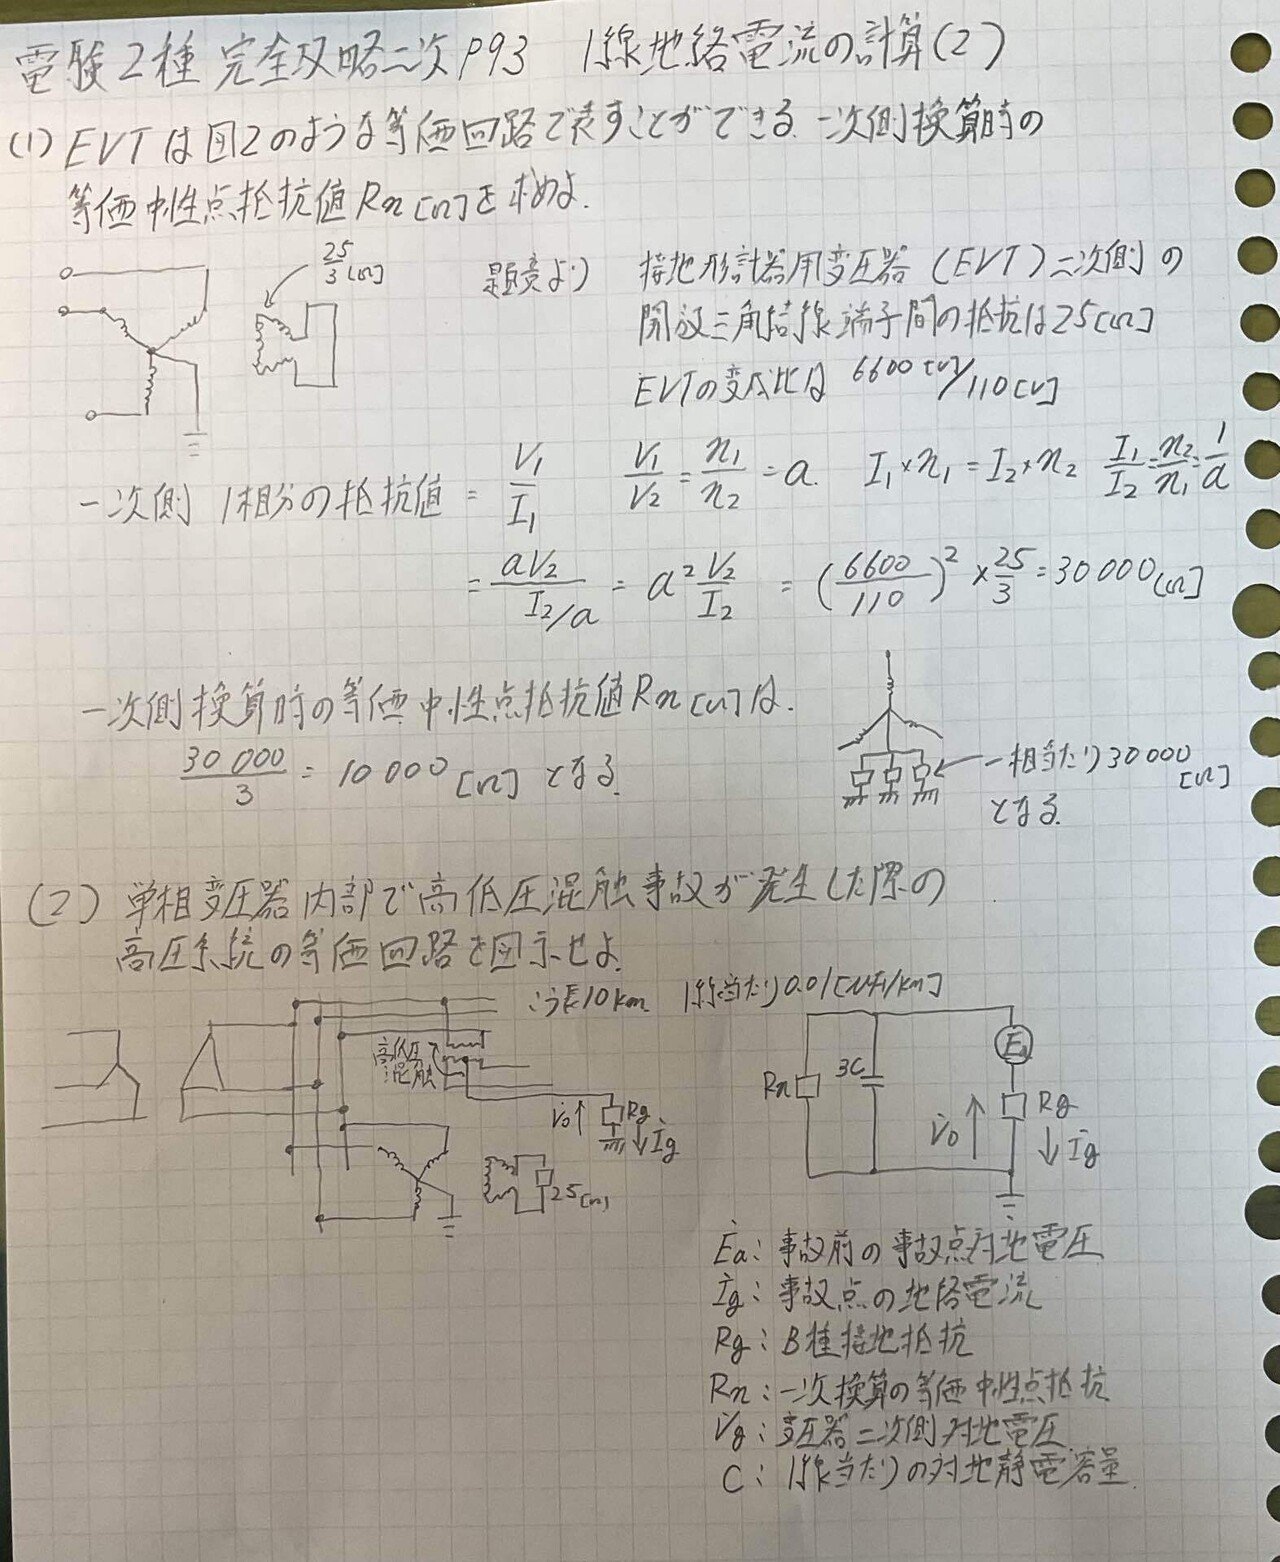 電験2種 完全攻略二次 P93 1線地絡電流の計算(2)
(1) EVTは図2のような等価回路で表すことができる. 一次側換算時の
等価中性点抵抗値Rn[Ω]を求めよ.
25/3[Ω]
題意より 接地形計器用変圧器(EVT)二次側の
開放三角結線端子間の抵抗は25[Ω]
EVTの変成比は 6600[V]/110[V]
一次側 1相分の抵抗値 = V1/I1 V1/V2 = n1/n2 = a. I1×n1 = I2×n2 I1/I2 = n2/n1 = 1/a
= aV2/(I2/a) = a² V2/I2 = (6600/110)² × 25/3 = 30000[Ω]
一次側換算時の等価中性点抵抗値Rn[Ω]は.
30000/3 = 10000[Ω] となる.
一相当たり30000[Ω]
となる.
(2) 単相変圧器内部で高低圧混触事故が発生した際の
高圧系統の等価回路を図示せよ.
こう長10km 1線当たり0.01[μF/km]
高低圧
混触
V̇o Rg İg
25[Ω]
Rn 3C Ėa Rg V̇o İg
Ėa: 事故前の事故点対地電圧
İg: 事故点の地絡電流
Rg: B種接地抵抗
Rn: 一次換算の等価中性点抵抗
V̇g: 変圧器二次側対地電圧
C: 1線当たりの対地静電容量.